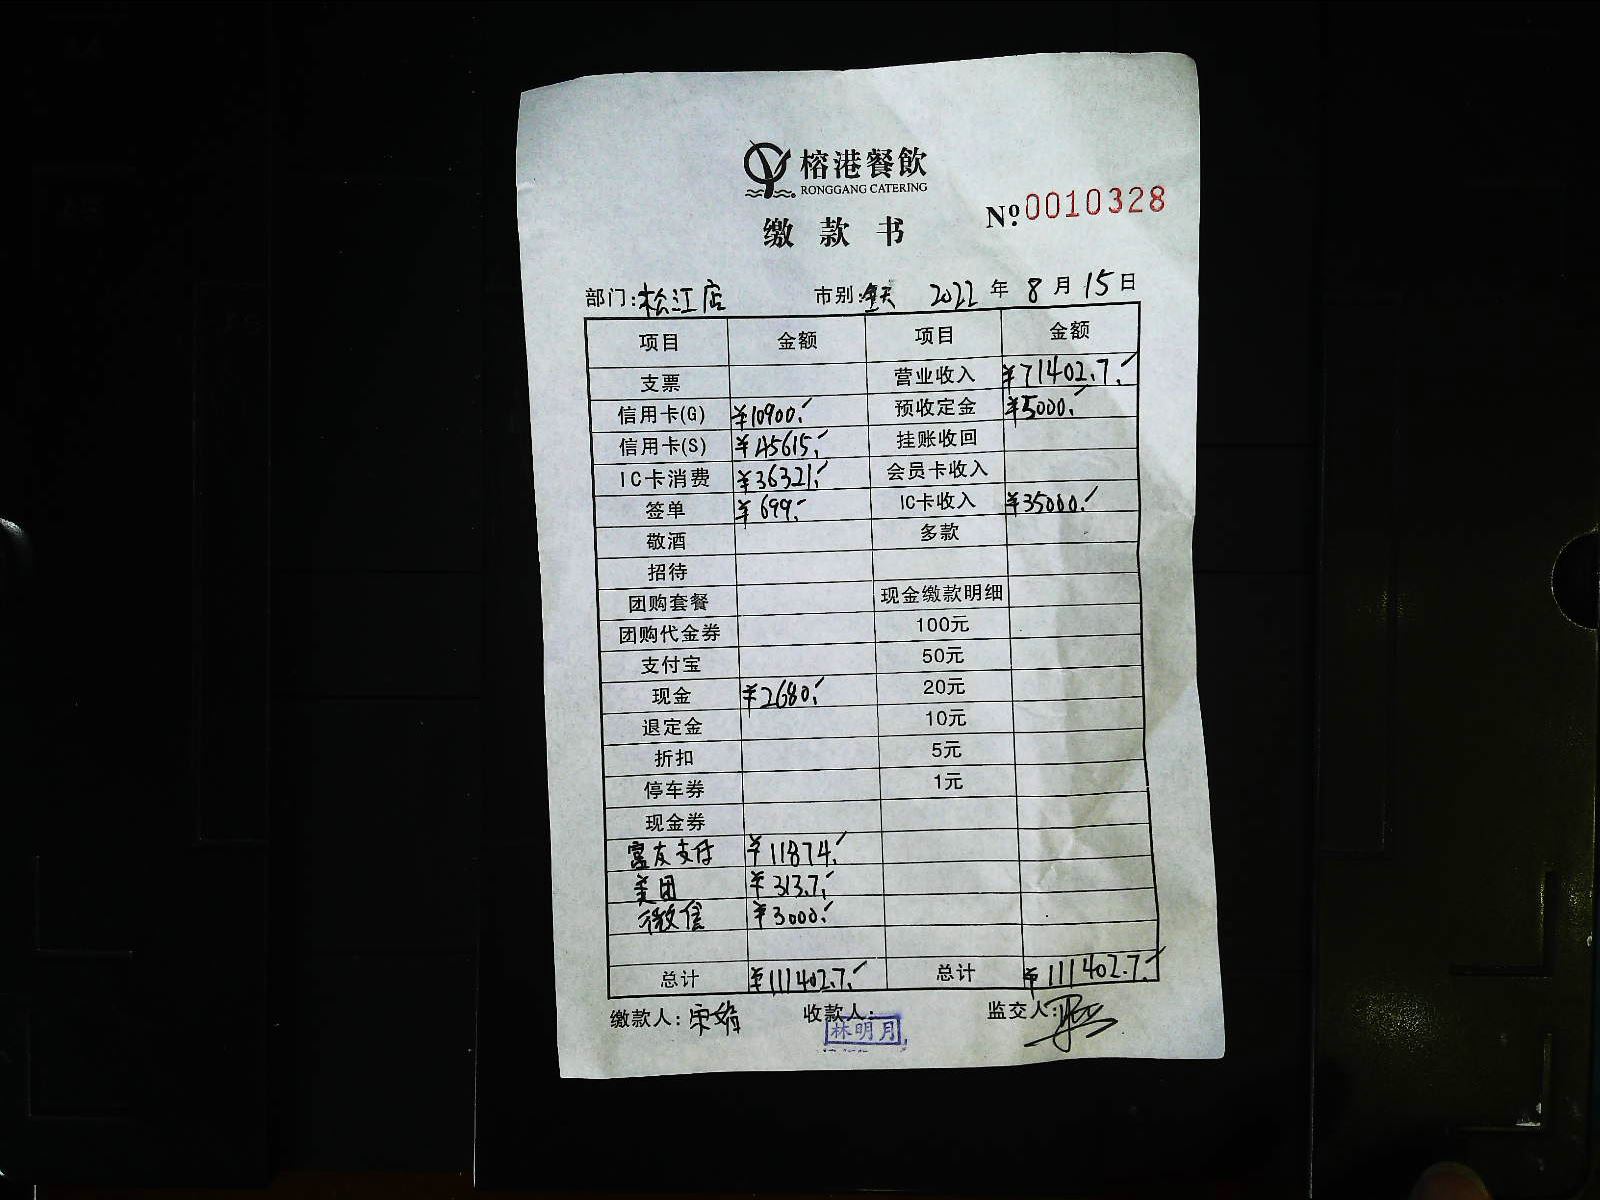 榕港餐飲
RONGGANG CATERING
缴款书
№0010328
部门:松江店 市别:全天 2022年8月15日
项目 金额 项目 金额
支票 营业收入 ¥71402.7.
信用卡(G) ¥10900. 预收定金 ¥5000.
信用卡(S) ¥45615. 挂账收回
IC卡消费 ¥36321. 会员卡收入
签单 ¥699. IC卡收入 ¥35000.
敬酒 多款
招待
团购套餐 现金缴款明细
团购代金券 100元
支付宝 50元
现金 ¥2680. 20元
退定金 10元
折扣 5元
停车券 1元
现金券
富友支付 ¥11874.
美团 ¥313.7.
微信 ¥3000.
总计 ¥111402.7. 总计 ¥111402.7.
缴款人: 收款人: 林明月 监交人: